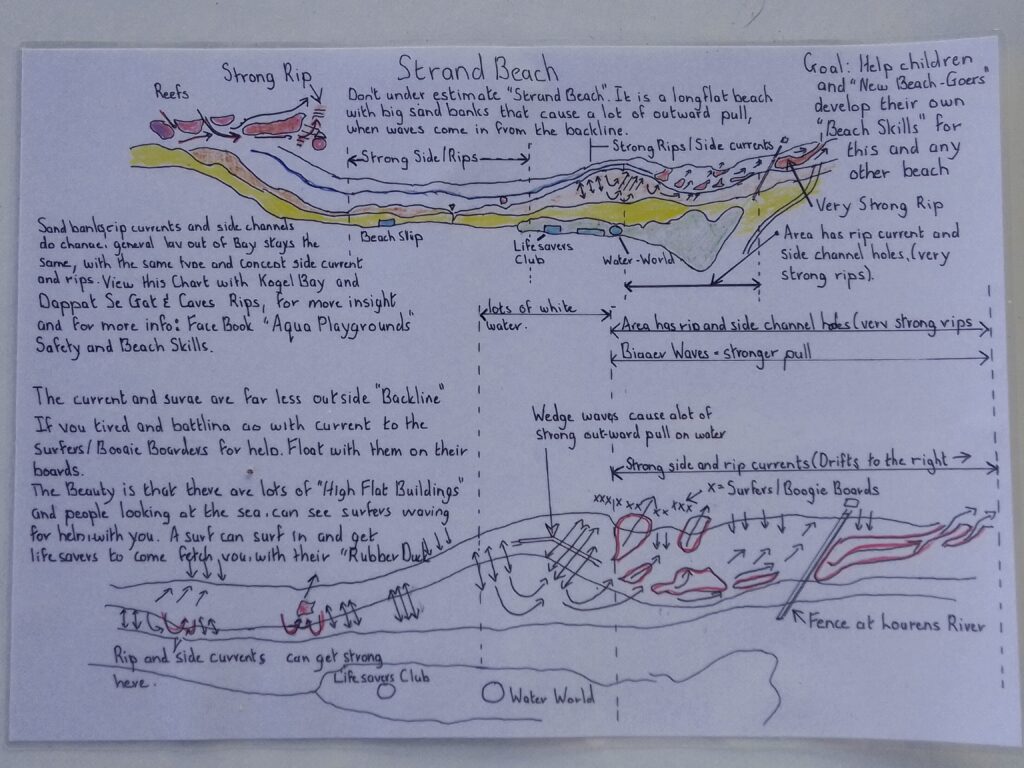 Strand Beach
Strong Rip
Reefs
Don't under estimate "Strand Beach". It is a long flat beach
with big sand banks that cause a lot of outward pull,
when waves come in from the backline.
Goal: Help children
and "New Beach-Goers"
develop their own
"Beach Skills" for
this and any
other beach
Strong Side/Rips
Strong Rips/Side currents
Very Strong Rip
Area has rip current and
side channel holes, (very
strong rips).
Beach Slip
Life savers
Club
Water-World
Sand banks, rip currents and side channels
do change, general lay out of Bay stays the
same, with the same type and concept side current
and rips. View this Chart with Kogel Bay and
Dappat Se Gat & Caves Rips, for more insight
and for more info: Face Book "Aqua Playgrounds"
Safety and Beach Skills.
lots of white
water.
Area has rip and side channel holes (very strong rips
Bigger Waves = stronger pull
The current and surge are far less outside "Backline"
If you tired and battling go with current to the
surfers/Boogie Boarders for help. Float with them on their
boards.
The Beauty is that there are lots of "High Flat Buildings"
and people looking at the sea, can see surfers waving
for help, with you. A surf can surf in and get
life savers to come fetch you, with their "Rubber Duck
Wedge waves cause alot of
strong out-ward pull on water
Strong side and rip currents (Drifts to the right →
xxx x xx xx xxx x = Surfers/Boogie Boards
Fence at Lourens River
Rip and side currents can get strong
here.
Life savers Club
Water World